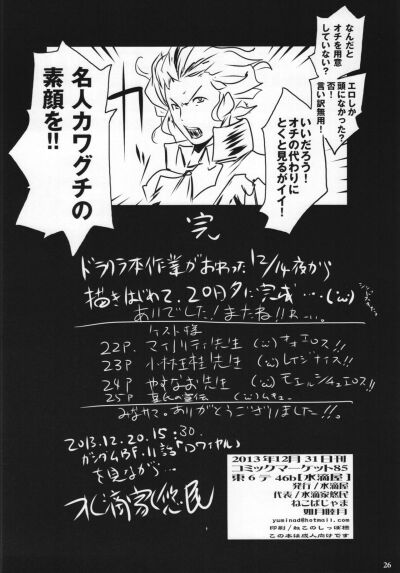 なんだと
オチを用意
していない?
エロしか
頭になかった?
否!
言い訳無用!
いいだろう!
オチの代わりに
とくと見るがイイ!
名人カワグチの
素顔を!!
完
ドラハラ本作業がおわった12/14夜から
描きはじめて、20日夕に完成…(;ω;)
ありでした!またね!!
ゲスト様
22P.
23P 小林王桂先生
24P やすなお先生
25P
みなさん。ありがとうございました!!!
2013.12.20.15:30.
ガンダムBF.11話「ロワイヤル」
を見ながら…
水滴家悠民
2013年12月31日刊
コミックマーケット85
東6テ46b[水滴屋]
発行/水滴屋
代表/水滴家悠民
ねこぱじゃま
如月睦月
yuminad@hotmail.com
印刷/ねこのしっぽ様
この本は成人向けです
26